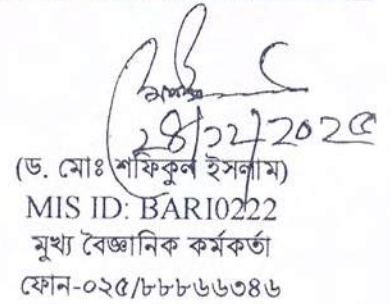 ২৪/১২/২০২৫
(ড. মোঃ শফিকুল ইসলাম)
MIS ID: BARI0222
মুখ্য বৈজ্ঞানিক কর্মকর্তা
ফোন-০২৫/৮৮৮৬৬৩৪৬